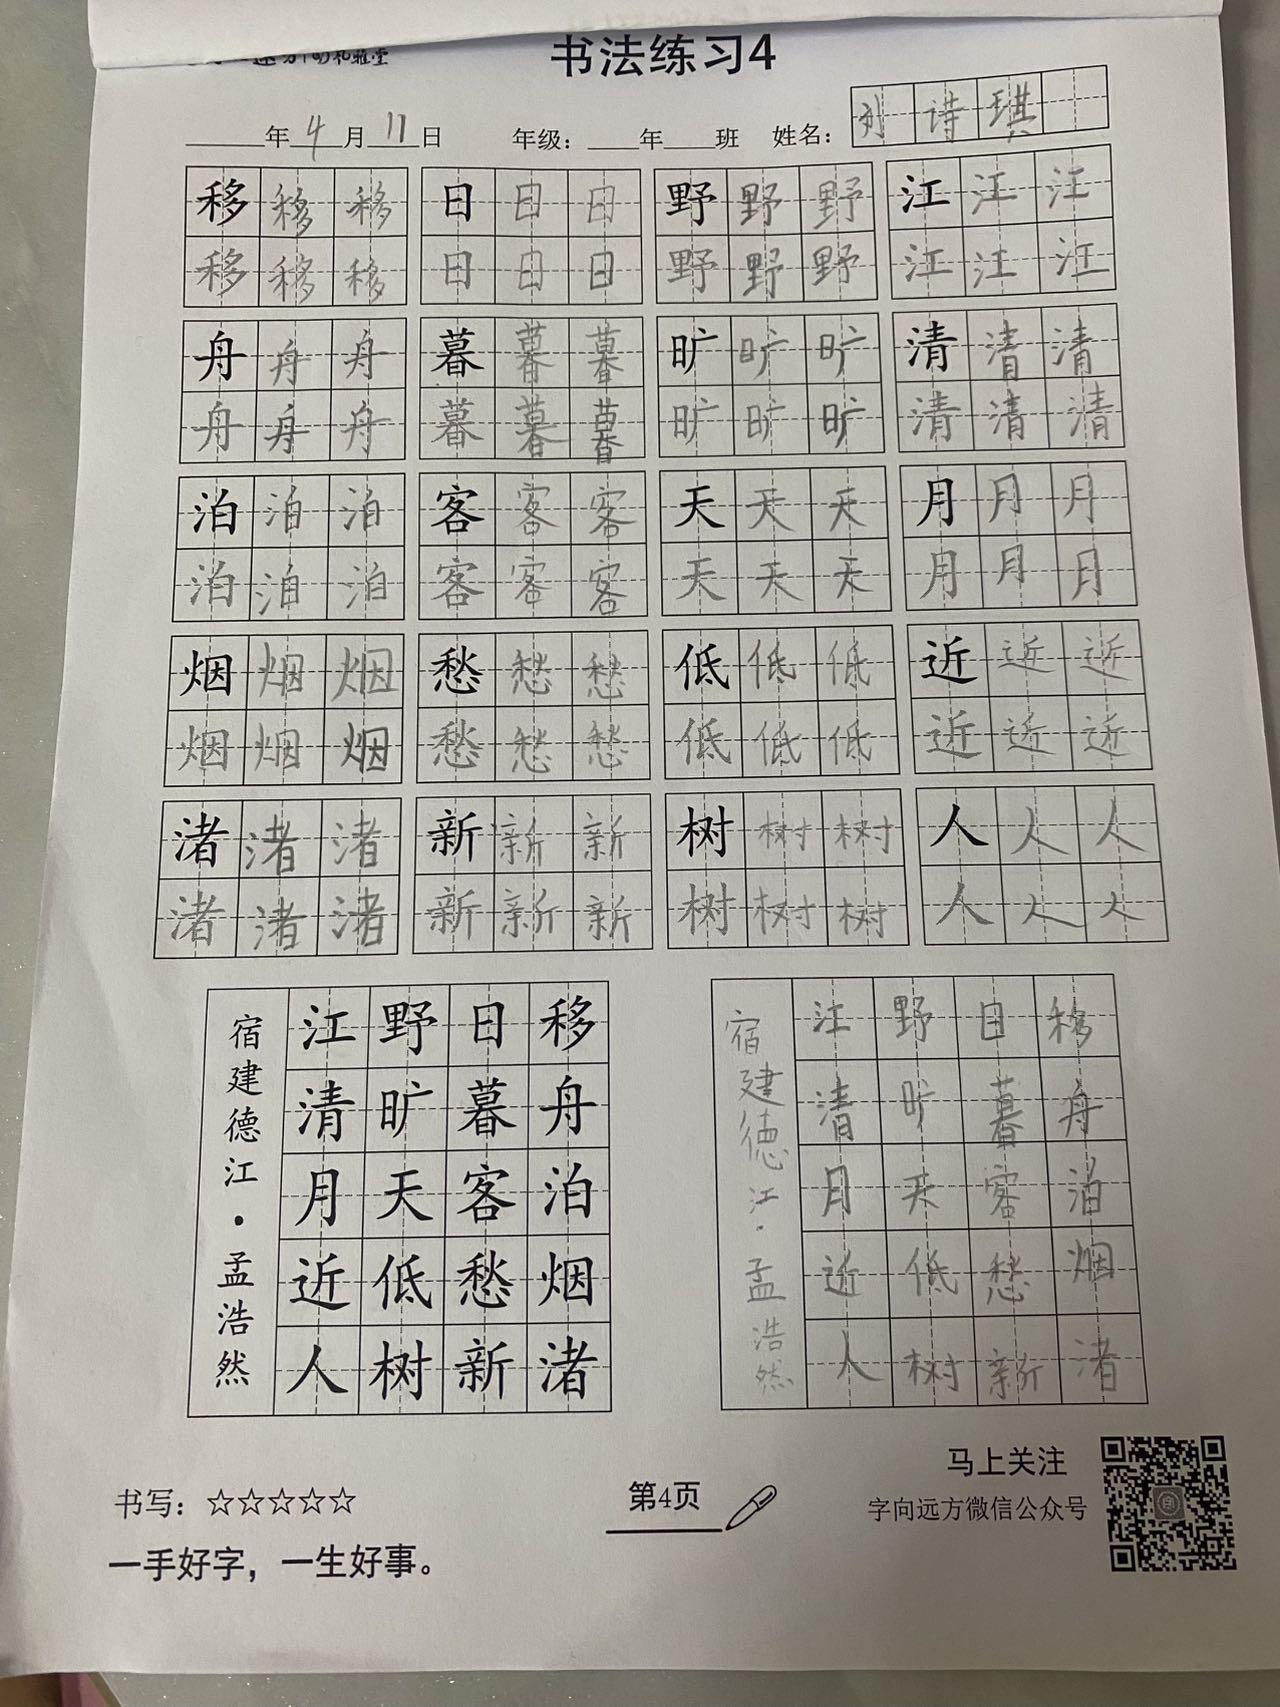 书法练习4
年4月11日 年级：年班 姓名：刘诗琪
移移移 日日日 野野野 江江江
移移移 日日日 野野野 江江江
舟舟舟 暮暮暮 旷旷旷 清清清
舟舟舟 暮暮暮 旷旷旷 清清清
泊泊泊 客客客 天天天 月月月
泊泊泊 客客客 天天天 月月月
烟烟烟 愁愁愁 低低低 近近近
烟烟烟 愁愁愁 低低低 近近近
渚渚渚 新新新 树树树 人人人
渚渚渚 新新新 树树树 人人人
移舟泊烟渚
日暮客愁新
野旷天低树
江清月近人
宿建德江·孟浩然
移舟泊烟渚
日暮客愁新
野旷天低树
江清月近人
宿建德江·孟浩然
书写：☆☆☆☆☆
一手好字，一生好事。
第4页
马上关注
字向远方微信公众号